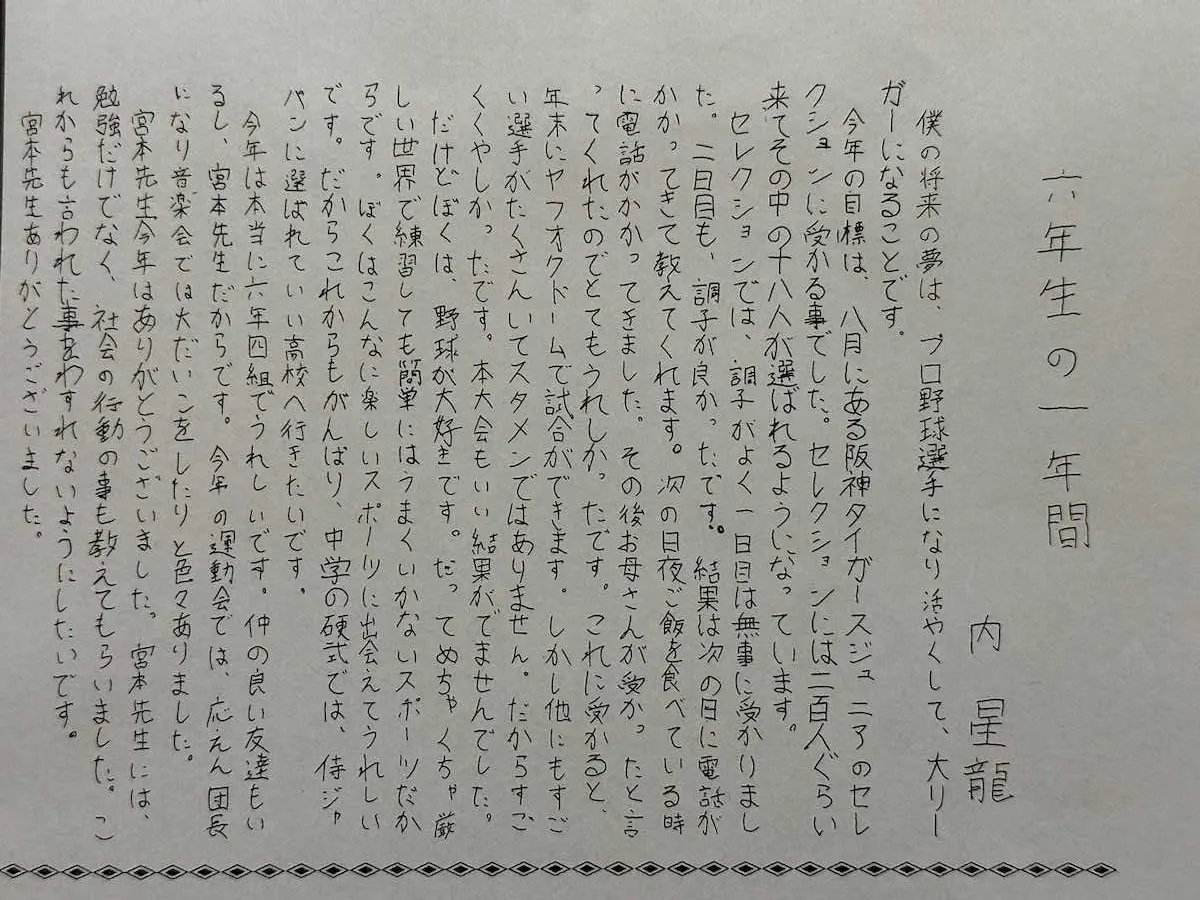 六年生の一年間
内 星龍
僕の将来の夢は、プロ野球選手になり活やくして、大リー
ガーになることです。
今年の目標は、八月にある阪神タイガースジュニアのセレ
クションに受かる事でした。セレクションには二百人ぐらい
来てその中の十八人が選ばれるようになっています。
セレクションでは、調子がよく一日目は無事に受かりまし
た。二日目も、調子が良かったです。結果は次の日に電話が
かかってきて教えてくれます。次の日夜ご飯を食べている時
に電話がかかってきました。その後お母さんが受かったと言
ってくれたのでとてもうれしかったです。これに受かると、
年末にヤフオクドームで試合ができます。しかし他にもすご
い選手がたくさんいてスタメンではありません。だからすご
くくやしかったです。本大会もいい結果がでませんでした。
だけどぼくは、野球が大好きです。だってめちゃくちゃ厳
しい世界で練習しても簡単にはうまくいかないスポーツだか
らです。ぼくはこんなに楽しいスポーツに出会えてうれしい
です。だからこれからもがんばり、中学の硬式では、侍ジャ
パンに選ばれていい高校へ行きたいです。
今年は本当に六年四組でうれしいです。仲の良い友達もい
るし、宮本先生だからです。今年の運動会では、応えん団長
になり音楽会では大だいこをしたりと色々ありました。
宮本先生今年はありがとうございました。宮本先生には、
勉強だけでなく、社会の行動の事も教えてもらいました。こ
れからも言われた事をわすれないようにしたいです。
宮本先生ありがとうございました。